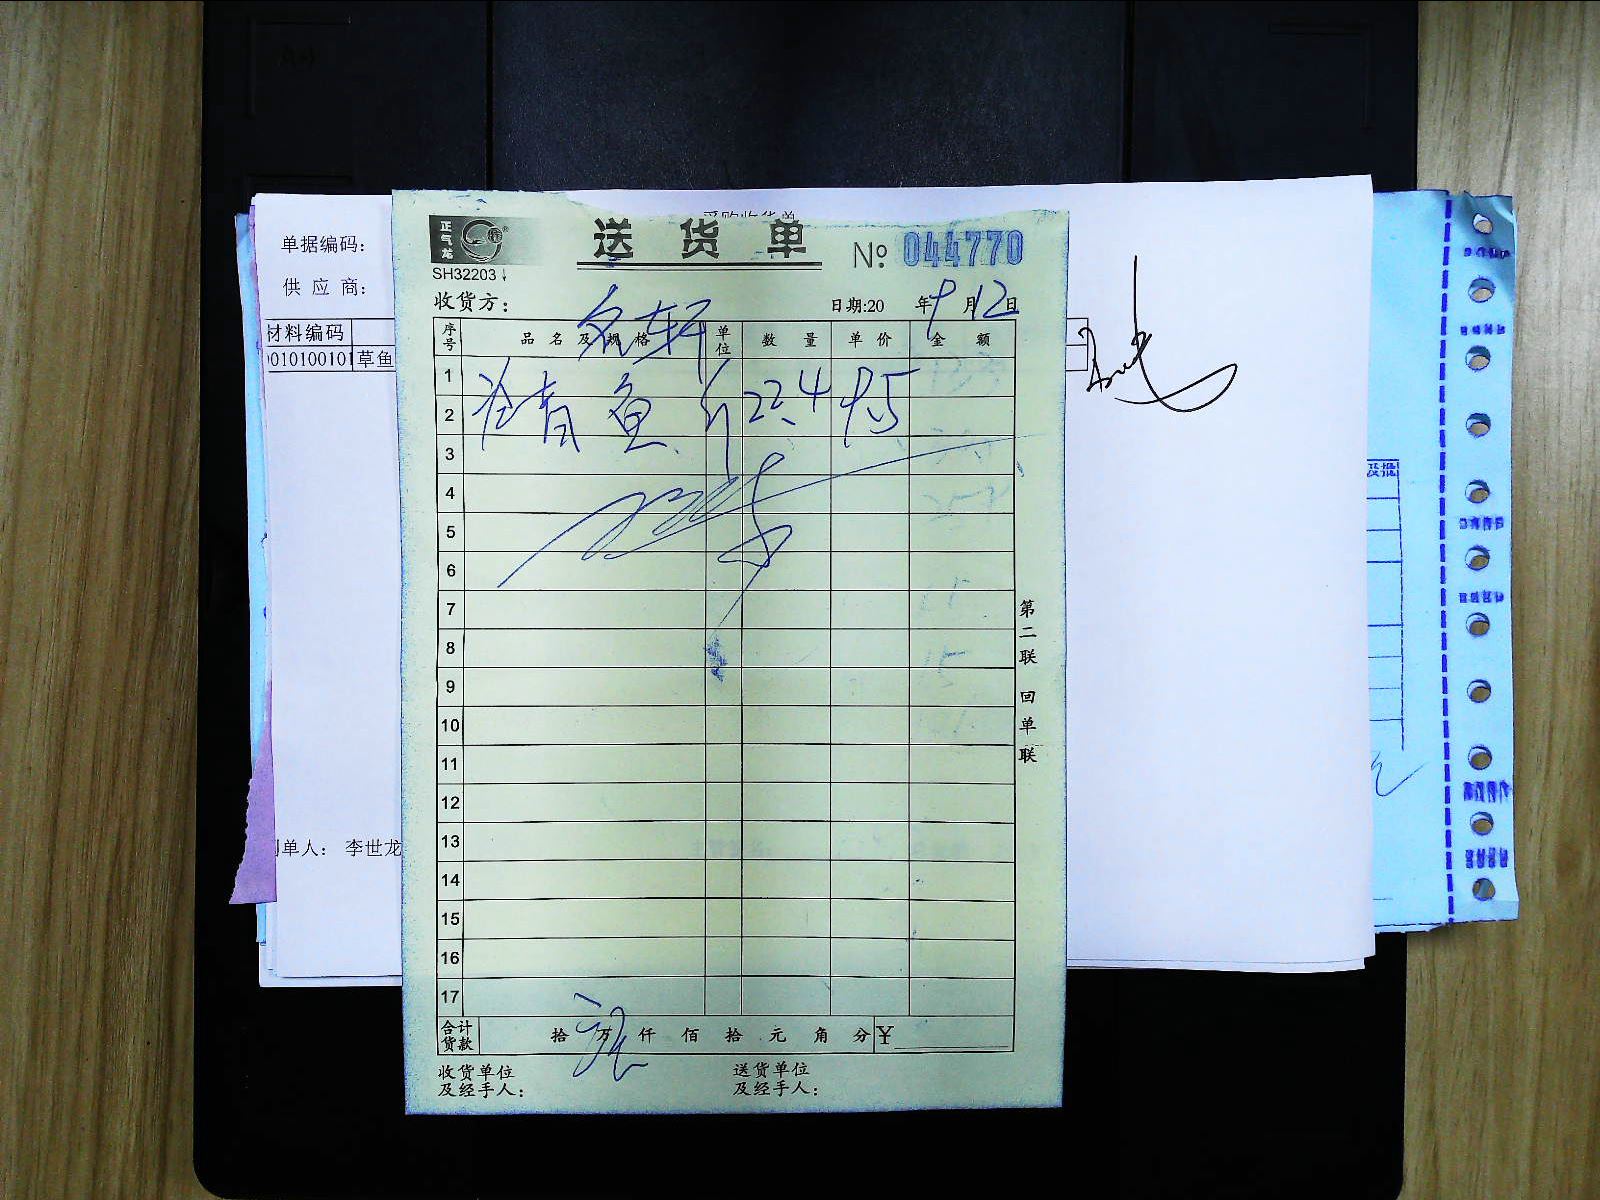 采购收货单
单据编码:
供 应 商:
材料编码
010100101 草鱼
制单人: 李世龙
正气龙
SH32203
送 货 单
№ 044770
收货方: 名轩
日期:20 年 9 月 12 日
序号 品 名 及 规 格 单位 数 量 单 价 金 额
1
2 青鱼 斤 22.4 9.5
3
4
5
6
7
8
9
10
11
12
13
14
15
16
17
合计货款 拾 万 仟 佰 拾 元 角 分 ¥
收货单位及经手人:
送货单位及经手人:
第二联 回单联